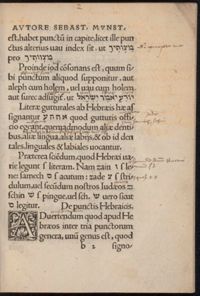 AVTORE SEBAST. MVNST.
est, habet punctū in capite, licet ille pun
ctus alterius uau index sit. ut מצותיך
pro מצוותיך
Proinde iod cōsonans est, quum si
bi punctum aliquod supponitur. aut
aleph cum holem, uel uau cum holem
aut surec adsūgit. ut
Literæ gutturales ab Hebræis hæ as
signantur אהחע quorum officiū
eo egeant, quemadmodum aliæ denti
bus, aliæ lingua, aliæ labijs, & ob id den
tales, linguales & labiales uocantur.
Præterea scīendum, quod Hebræi ua
rie legunt s literam. Nam zain ז s le
ne: samech ס s acutum: zade צ s stri
dulum, uel secūdum nostros Iudæos
schin ש s pingue, uel sch. ש uero sicut
ס legitur. De punctis Hebraicis.
ADuertendum quod apud He
bræos inter tria punctorum
genera, unū genus est, quod
b 2 signo